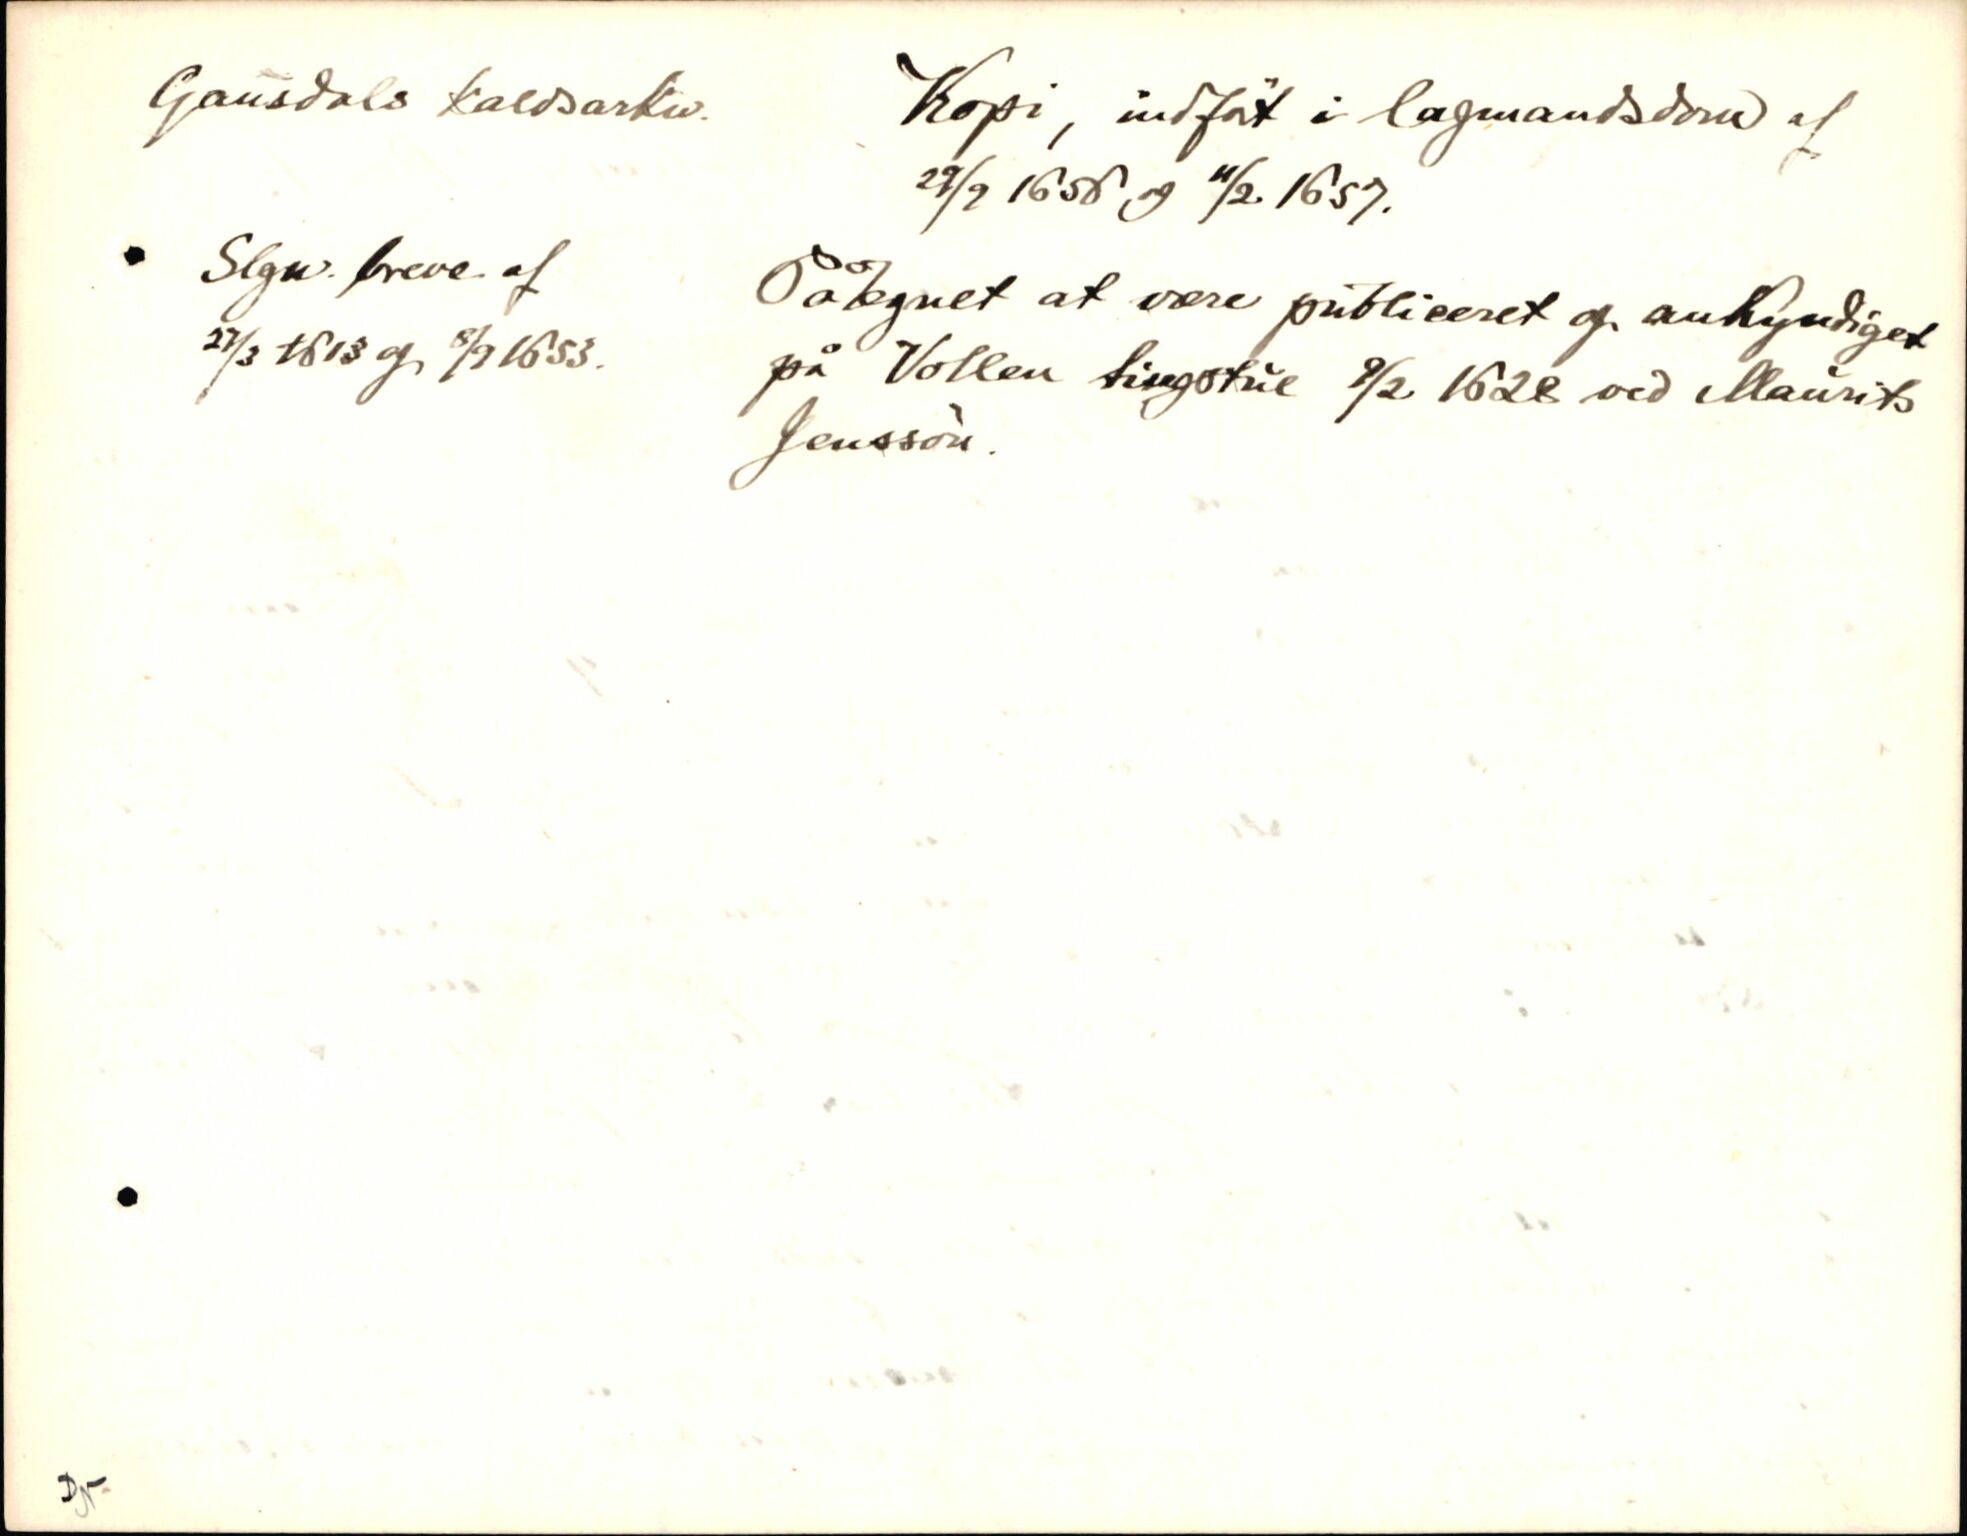 Gausdals kaldsarkiv.
Kopi, indført i lagmandsdom af
29/9 1656 og 11/2 1657.
Slgn. breve af
27/3 1613 og 8/9 1653.
Påtegnet at være publiceret og ankyndiget
på Vollen tingstue 9/2 1628 ved Maurits
Jenssøn.
DN